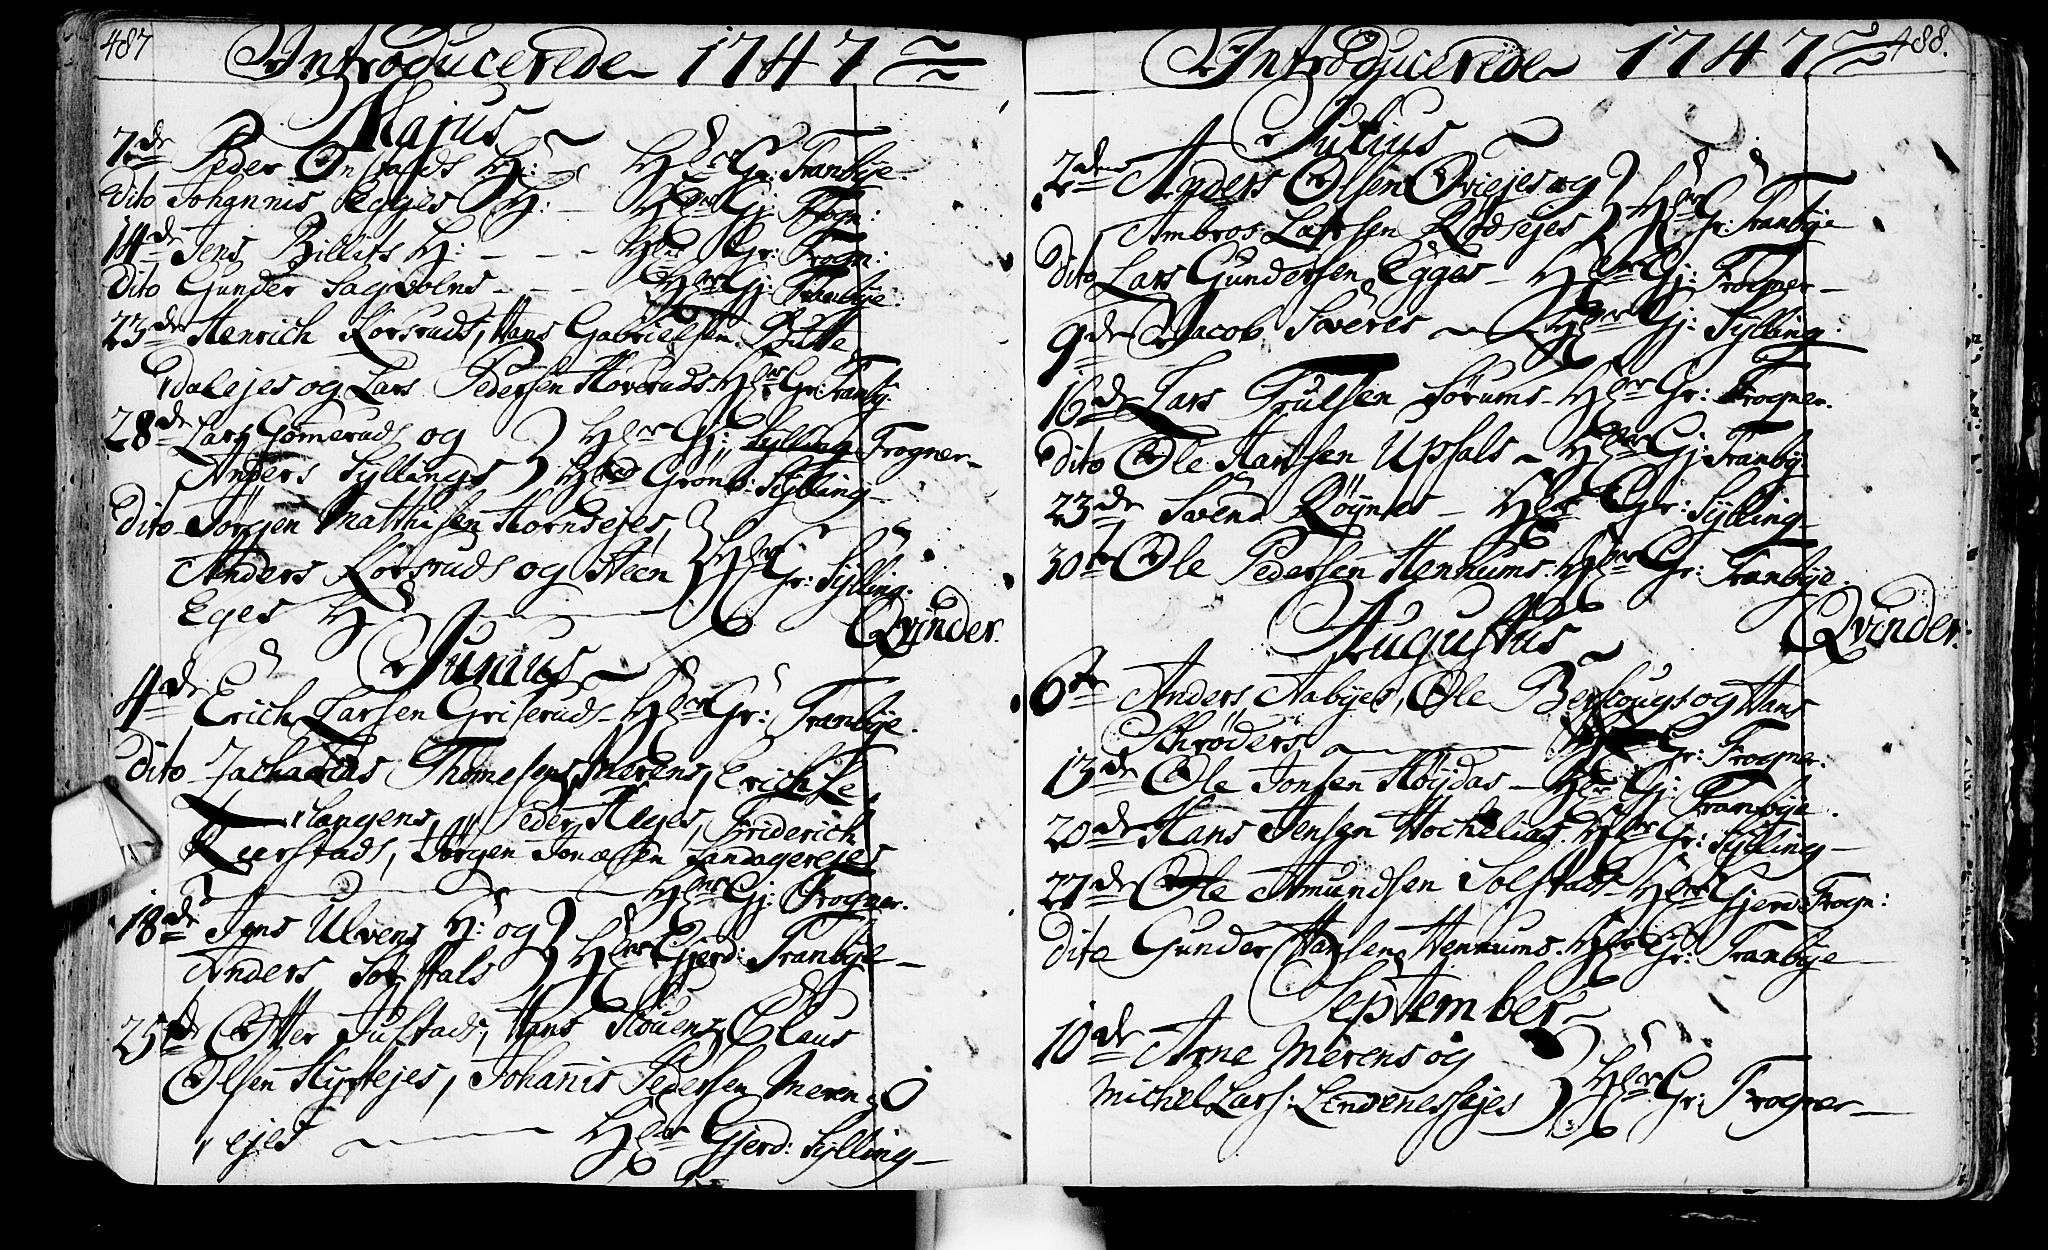 487
Introducerede 1747
Majus
7de Peder Onstads H: - Hr Gr: Tranbye.
dito Johannis Egges H: - Hr Gj: Frogn:
14de Jens Billits H: - - - Hr Gr: Frogn:
Dito Gunder Sagvolns - - - Hr Gj: Tranbye.
23de Henrich Korsruds, Hans Gabrielsen Bitte
dalejes og Lars Pedersen Hoveruds Hr Gr: Tranby.
28de Lars Gomeruds og Hr Gj: Sylling Frogner
Anders Syllings Hans Grønl: Sylling
Dito Jørgen Matthisen Hornsejes,
Anders Korsruds og Steen Hr Gr: Sylling.
Eges H
Qvinder.
Junius
4de Erich Larsen Griseruds Hr Gr: Tranbye.
Dito Zacharias Thomesens Merens, Erich Le
Langens, Peder Heges, Friderich
Kierstads, Jørgen Jonæsen Sandagerejes
Hr Gj: Frogner.
18de Jens Ulvens H: og
Anders Solstals Hr Gjerd: Tranbye
25de Otter Justads, Hans Houens, Claus
Olsen Hyttejes, Johanis Pedersen Merens
ejes Hr Gjerd: Sylling
488.
Introducerede 1747
Julius
2den Anders Olsen Oviejes og
Ambros Larsen Rødsejes Hr Gr: Tranbye
Dito Lars Gundersen Egges - Hr Gj: Frogner
9de Jacob Sveres Hr Gj: Sylling:
16de Lars Trulsen Sørums - Hr Gr: Frogner.
Dito Ole Hansen Upsals - Hr Gj: Tranby
23de Svend Røynes - Hr Gr: Sylling
30te Ole Pedersen Hennums. Hr Gr: Tranbye.
Qvinder.
Augustus
6te Anders Aabyes, Ole Berskougs og Hans
Schrøders Hr Gr: Frogner.
13de Ole Jonsen Høydas - Hr Gj: Tranbye.
20de Hans Jensen Hochelias. Hr Gr: Sylling
27de Ole Amundsen Solstads Hr Gjerd Frogn:
dito Gunder Hansen Hennums. Hr Gr: Tranbye
September
10de Arne Merens og
Michel Lars: Lindenessejes Hr Gr: Frogner